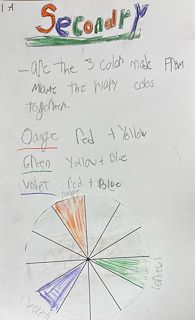 1A
Secondry
- are the 3 colors made from
the colos
together.
Oarnge Red + Yellow
Green Yellow + Blue
Violet Red + Blue
Oarnge
(Green)
(Violet)